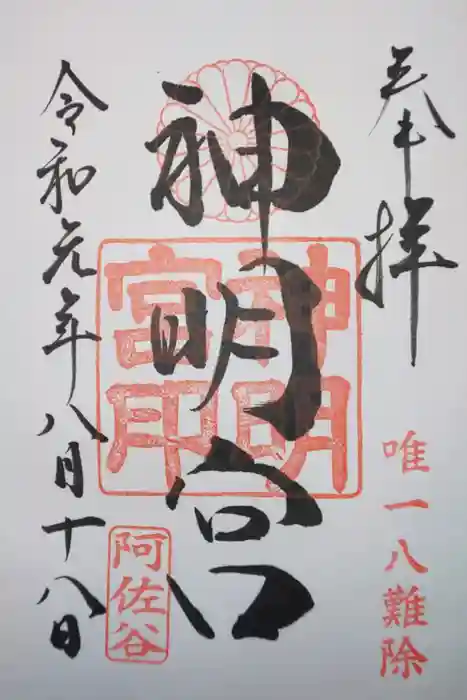 奉拝
唯一八難除
神明宮
神明宮印
令和元年八月十八日
阿佐谷